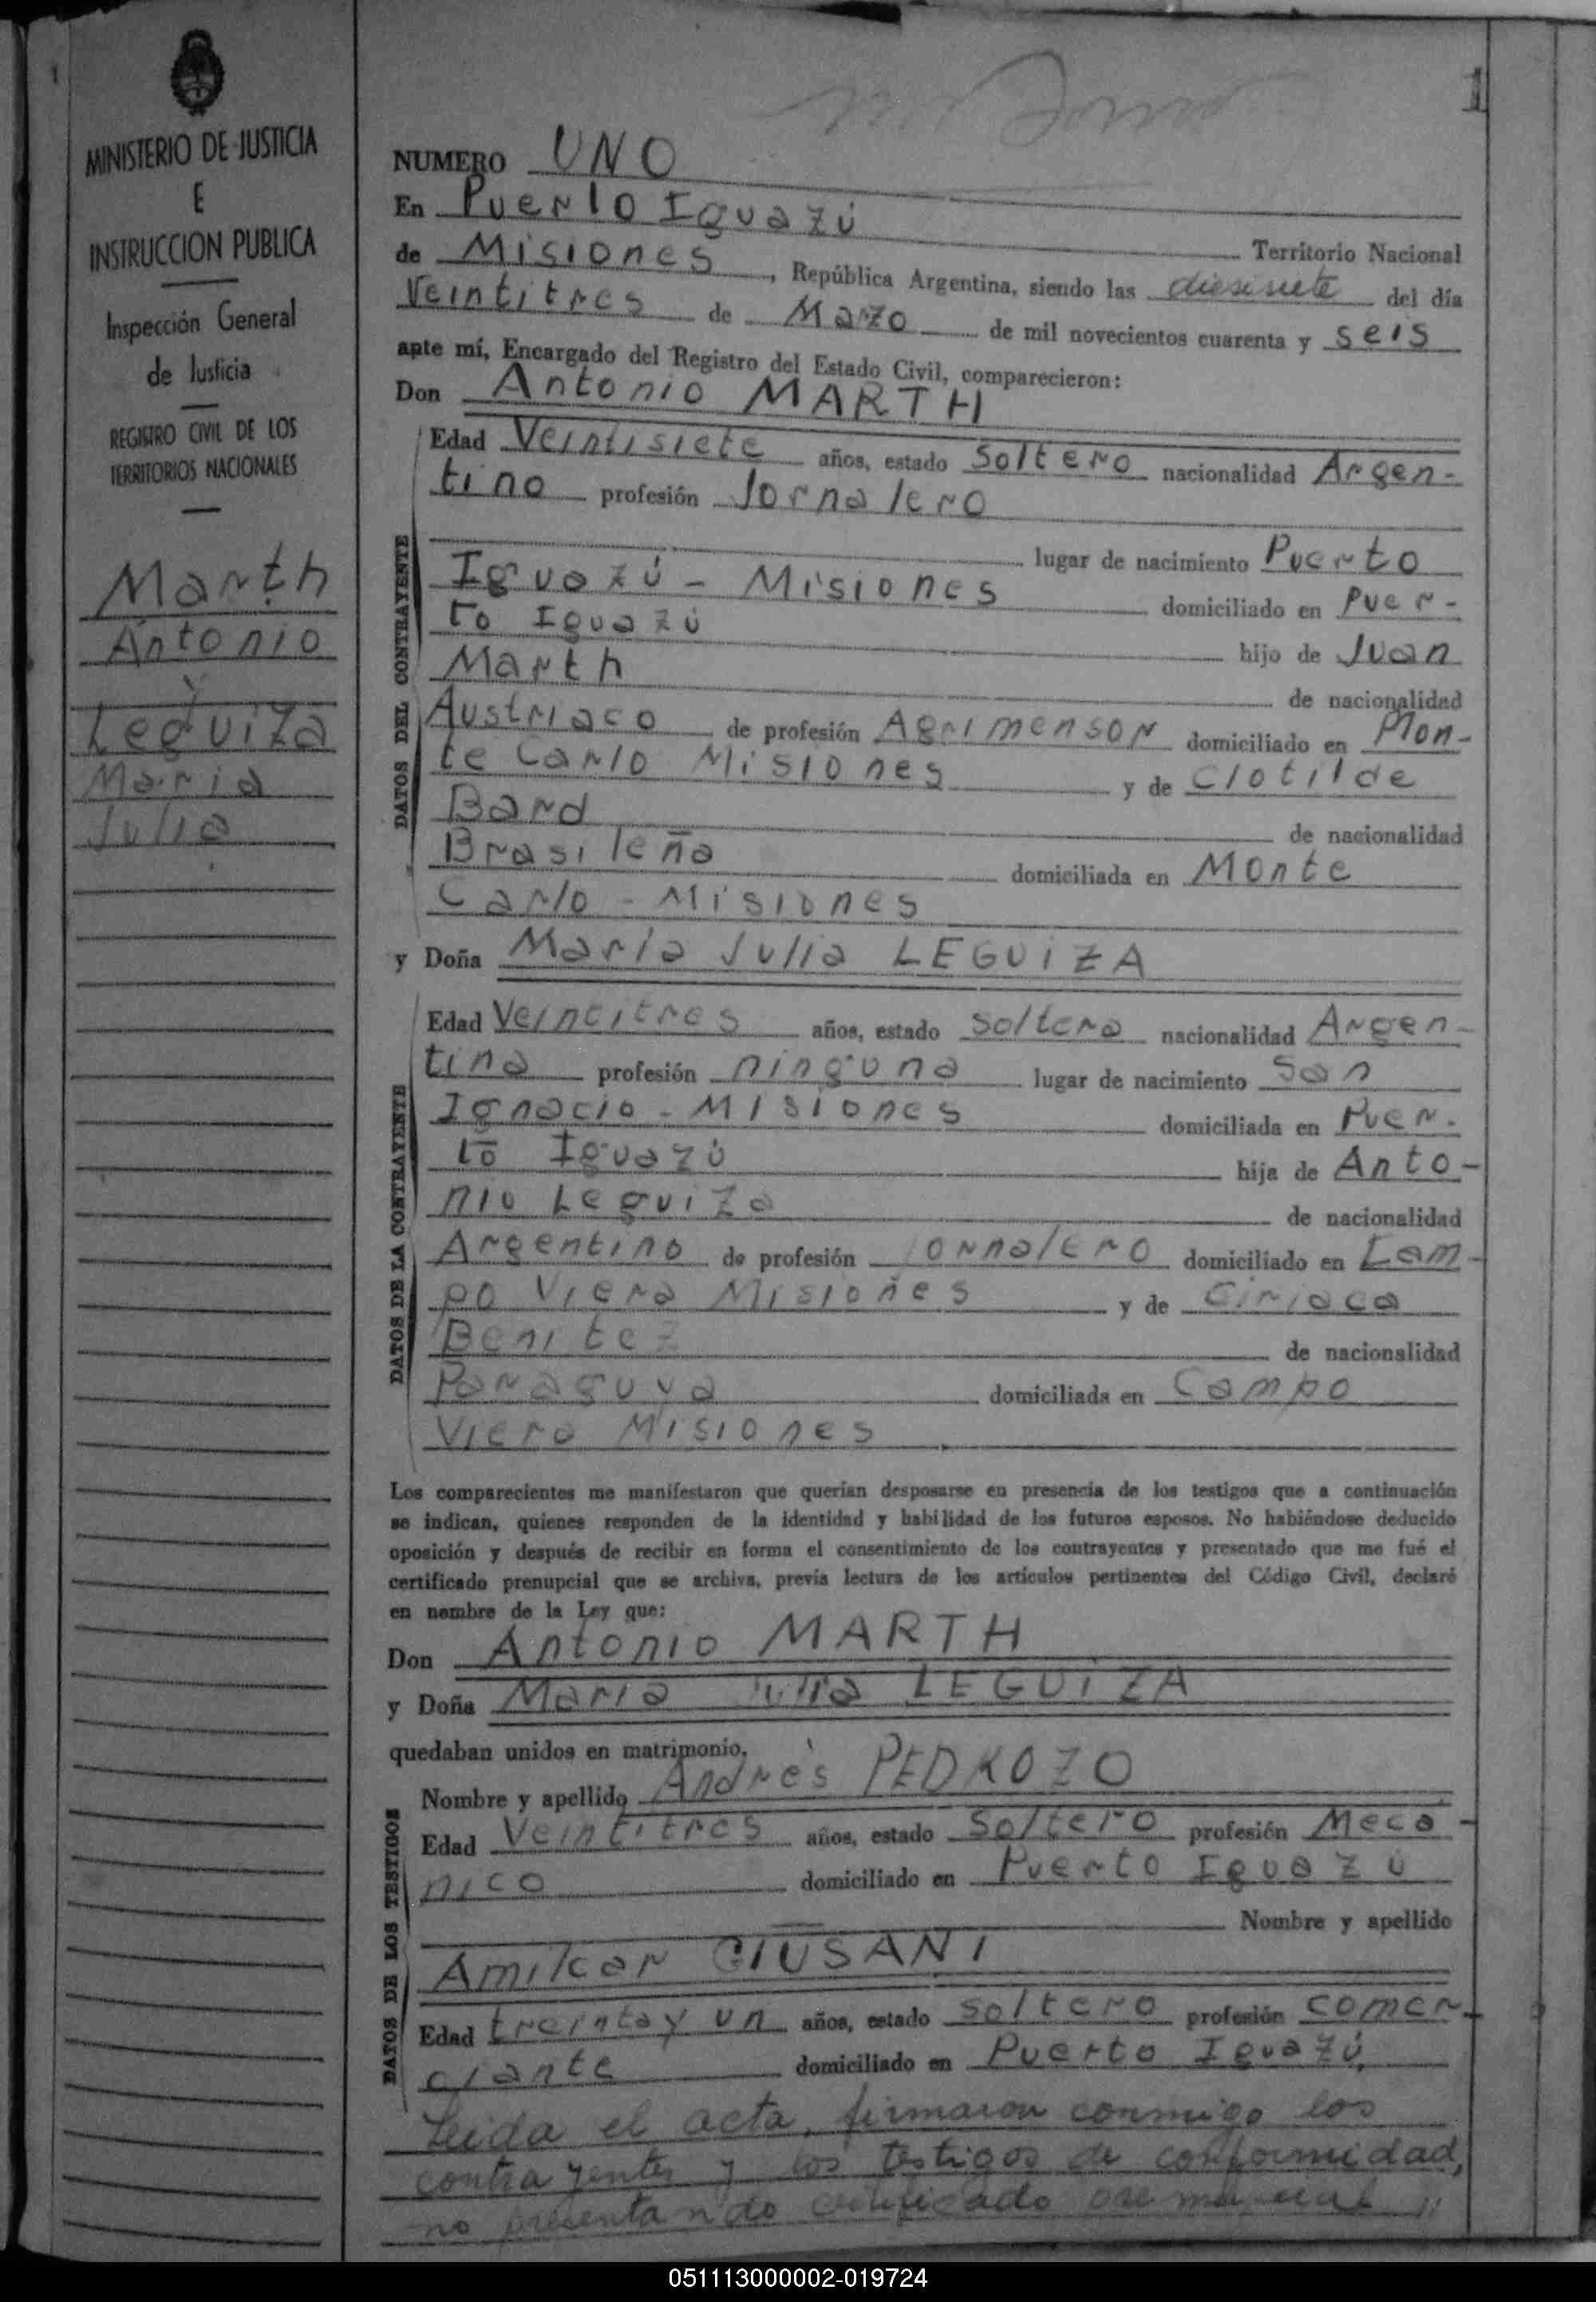 1
MINISTERIO DE JUSTICIA
E
INSTRUCCION PUBLICA
Inspección General
de Justicia
REGISTRO CIVIL DE LOS
TERRITORIOS NACIONALES
Marth
Antonio
y
Leguiza
Maria
Julia
NUMERO UNO
En Puerto Iguazú
de Misiones, Territorio Nacional
República Argentina, siendo las diesisiete del día
Veintitres de Marzo de mil novecientos cuarenta y seis
ante mí, Encargado del Registro del Estado Civil, comparecieron:
Don Antonio MARTH
DATOS DEL CONTRAYENTE
Edad Veintisiete años, estado Soltero nacionalidad Argen-
tino profesión Jornalero
lugar de nacimiento Puerto
Iguazú - Misiones domiciliado en Puer-
to Iguazú hijo de Juan
Marth de nacionalidad
Austriaco de profesión Agrimensor domiciliado en Mon-
te Carlo Misiones y de Clotilde
Bard de nacionalidad
Brasileña domiciliada en Monte
Carlo - Misiones
y Doña Maria Julia LEGUIZA
DATOS DE LA CONTRAYENTE
Edad Veintitres años, estado soltera nacionalidad Argen-
tina profesión ninguna lugar de nacimiento San
Ignacio - Misiones domiciliada en Puer-
to Iguazú hija de Anto-
nio Leguiza de nacionalidad
Argentino de profesión Jornalero domiciliado en Cam-
po Viera Misiones y de Ciriaca
Benitez de nacionalidad
Paraguya domiciliada en Campo
Viera Misiones
Los comparecientes me manifestaron que querían desposarse en presencia de los testigos que a continuación
se indican, quienes responden de la identidad y habilidad de los futuros esposos. No habiéndose deducido
oposición y después de recibir en forma el consentimiento de los contrayentes y presentado que me fué el
certificado prenupcial que se archiva, previa lectura de los artículos pertinentes del Código Civil, declaré
en nombre de la Ley que:
Don Antonio MARTH
y Doña Maria Julia LEGUIZA
quedaban unidos en matrimonio.
DATOS DE LOS TESTIGOS
Nombre y apellido Andrés PEDROZO
Edad Veintitres años, estado Soltero profesión Meca-
nico domiciliado en Puerto Iguazú
Nombre y apellido
Amilcar GIUSANI
Edad treinta y un años, estado soltero profesión comer-
ciante domiciliado en Puerto Iguazú
Leida el acta, firmaron conmigo los
contrayentes y los testigos de conformidad,
no presentando certificado
051113000002-019724